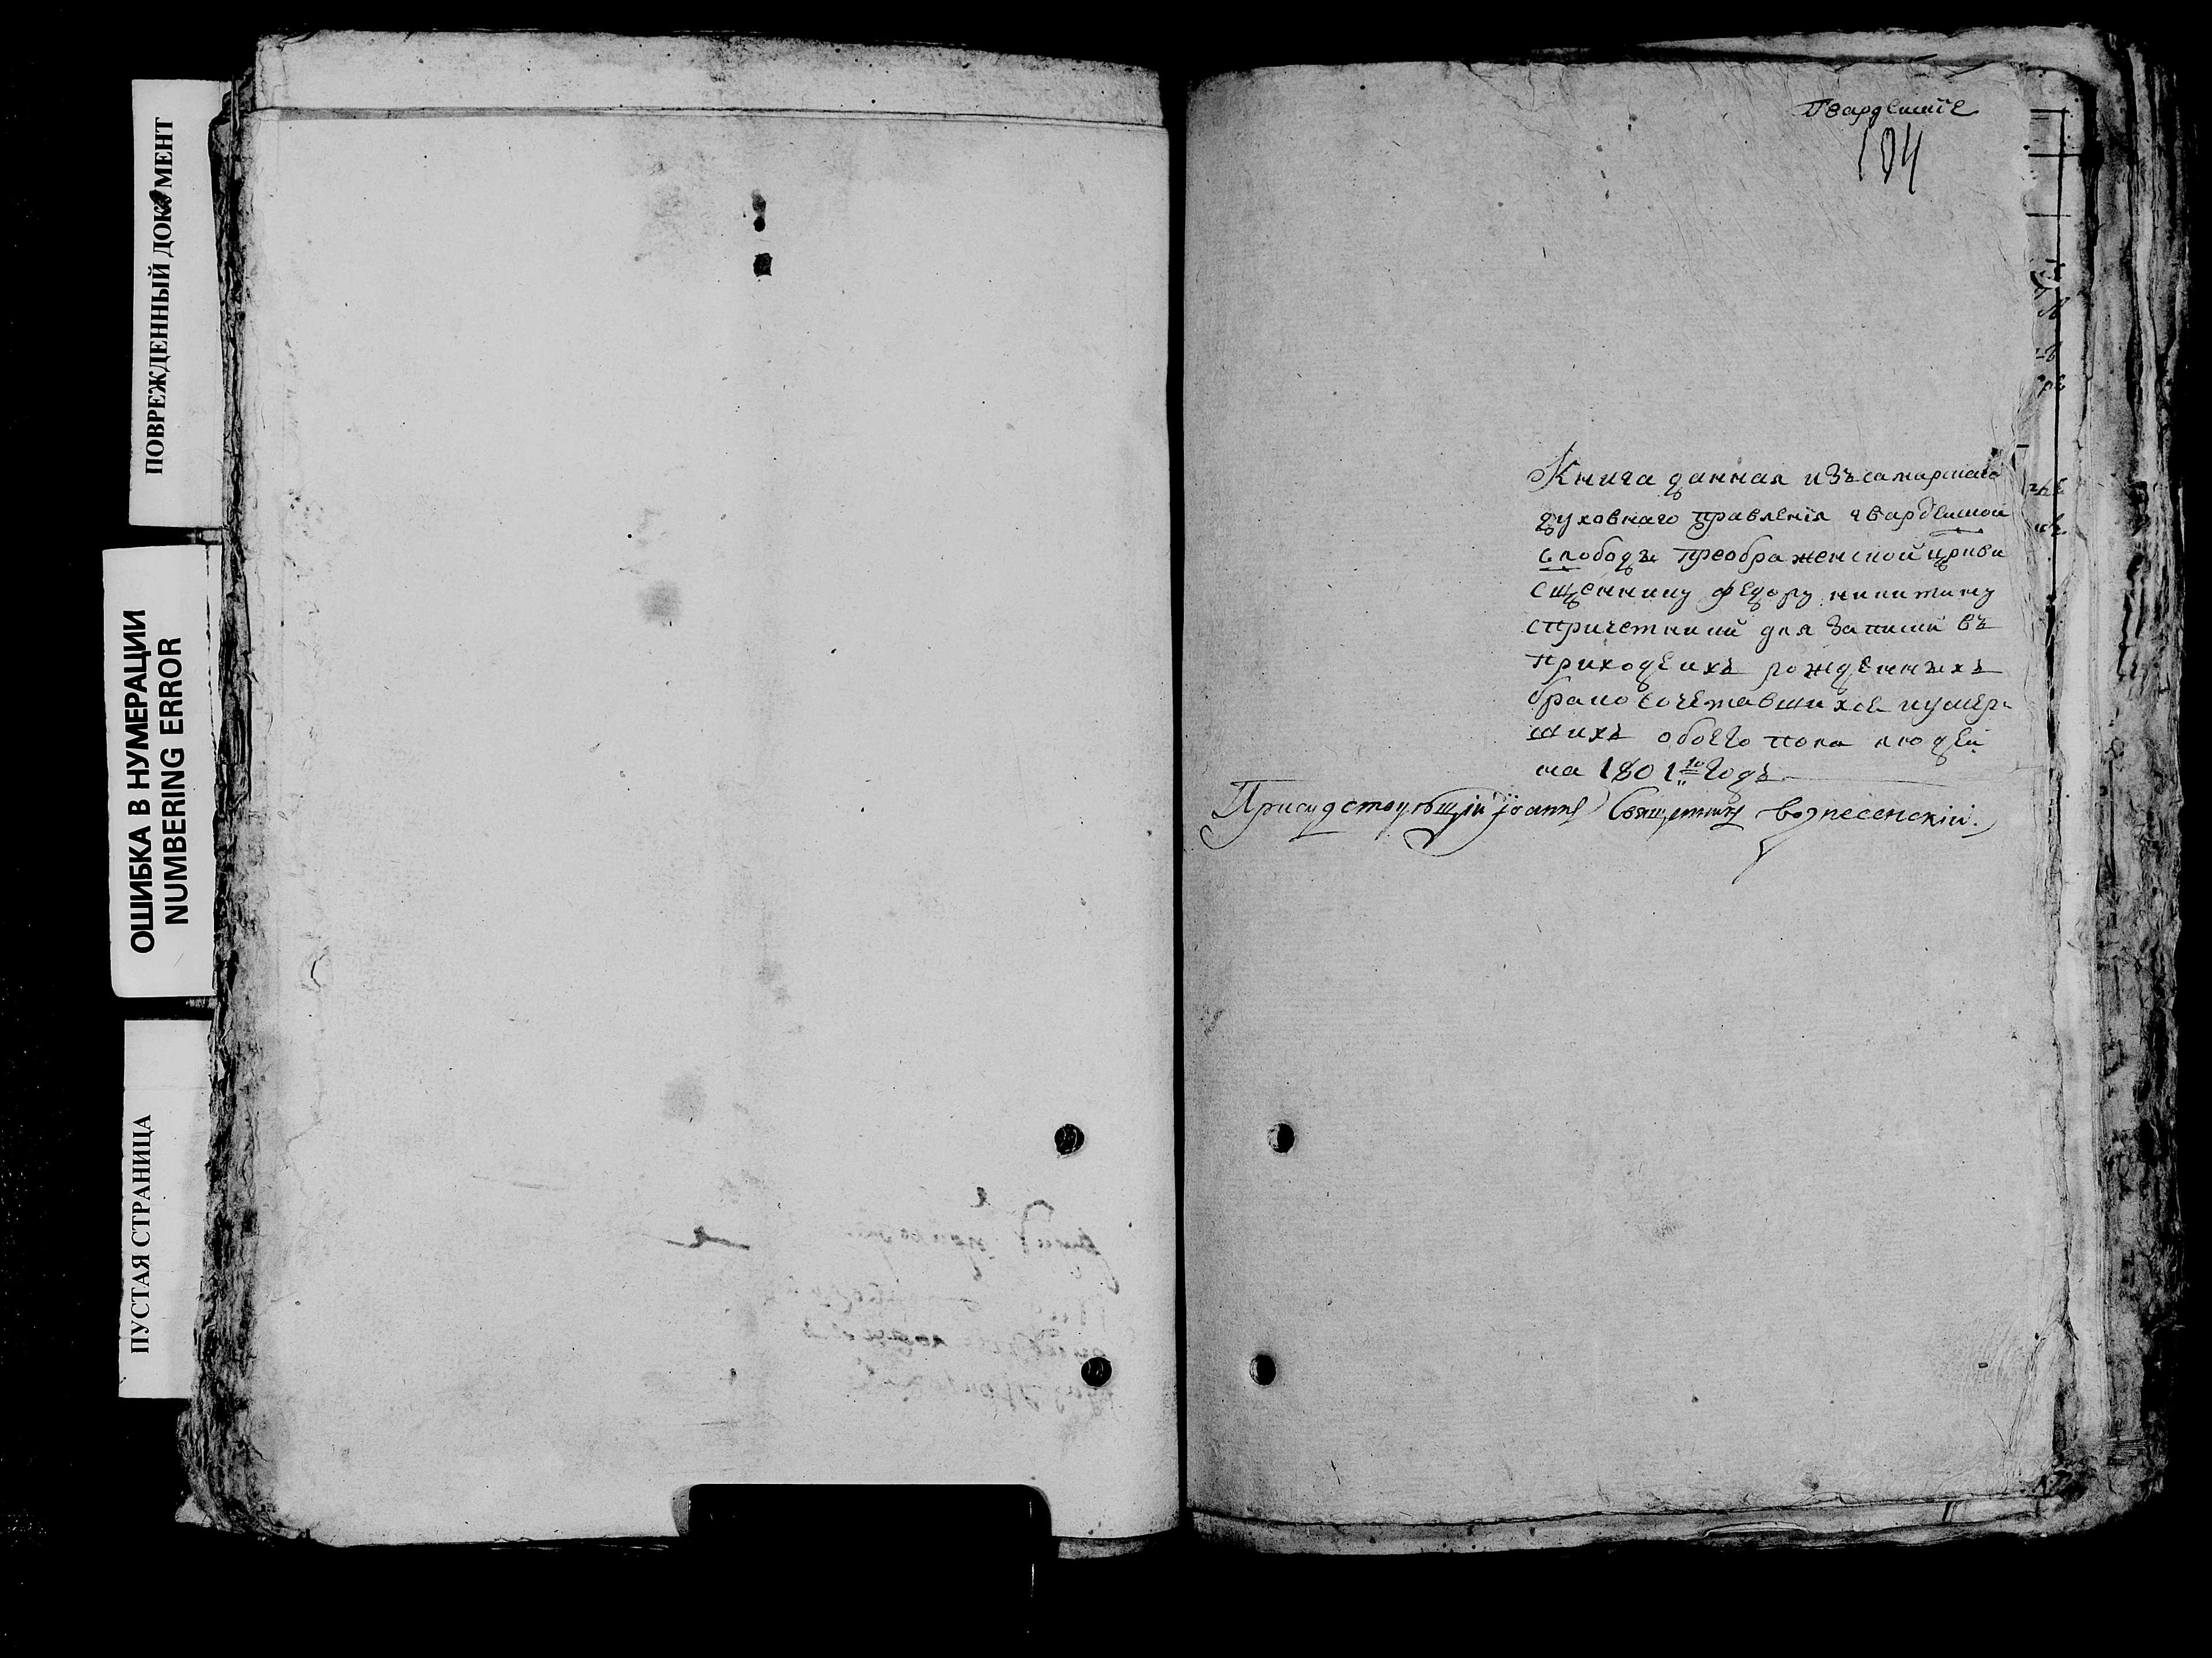 ПОВРЕЖДЕННЫЙ ДОКУМЕНТ
ОШИБКА В НУМЕРАЦИИ
NUMBERING ERROR
ПУСТАЯ СТРАНИЦА
104
Книга данная изъ самарскаго
духовнаго правленія гвардейской
слободы преображенской цркви
сщеннику федору никитину
спричетники для записки въ
приходеихъ рожденныхъ
брако сочетавшихся иумер
шихъ обоего пола людей
на 1801 го годъ
Присудствующій Іоаннъ Священникъ вознесенскій.